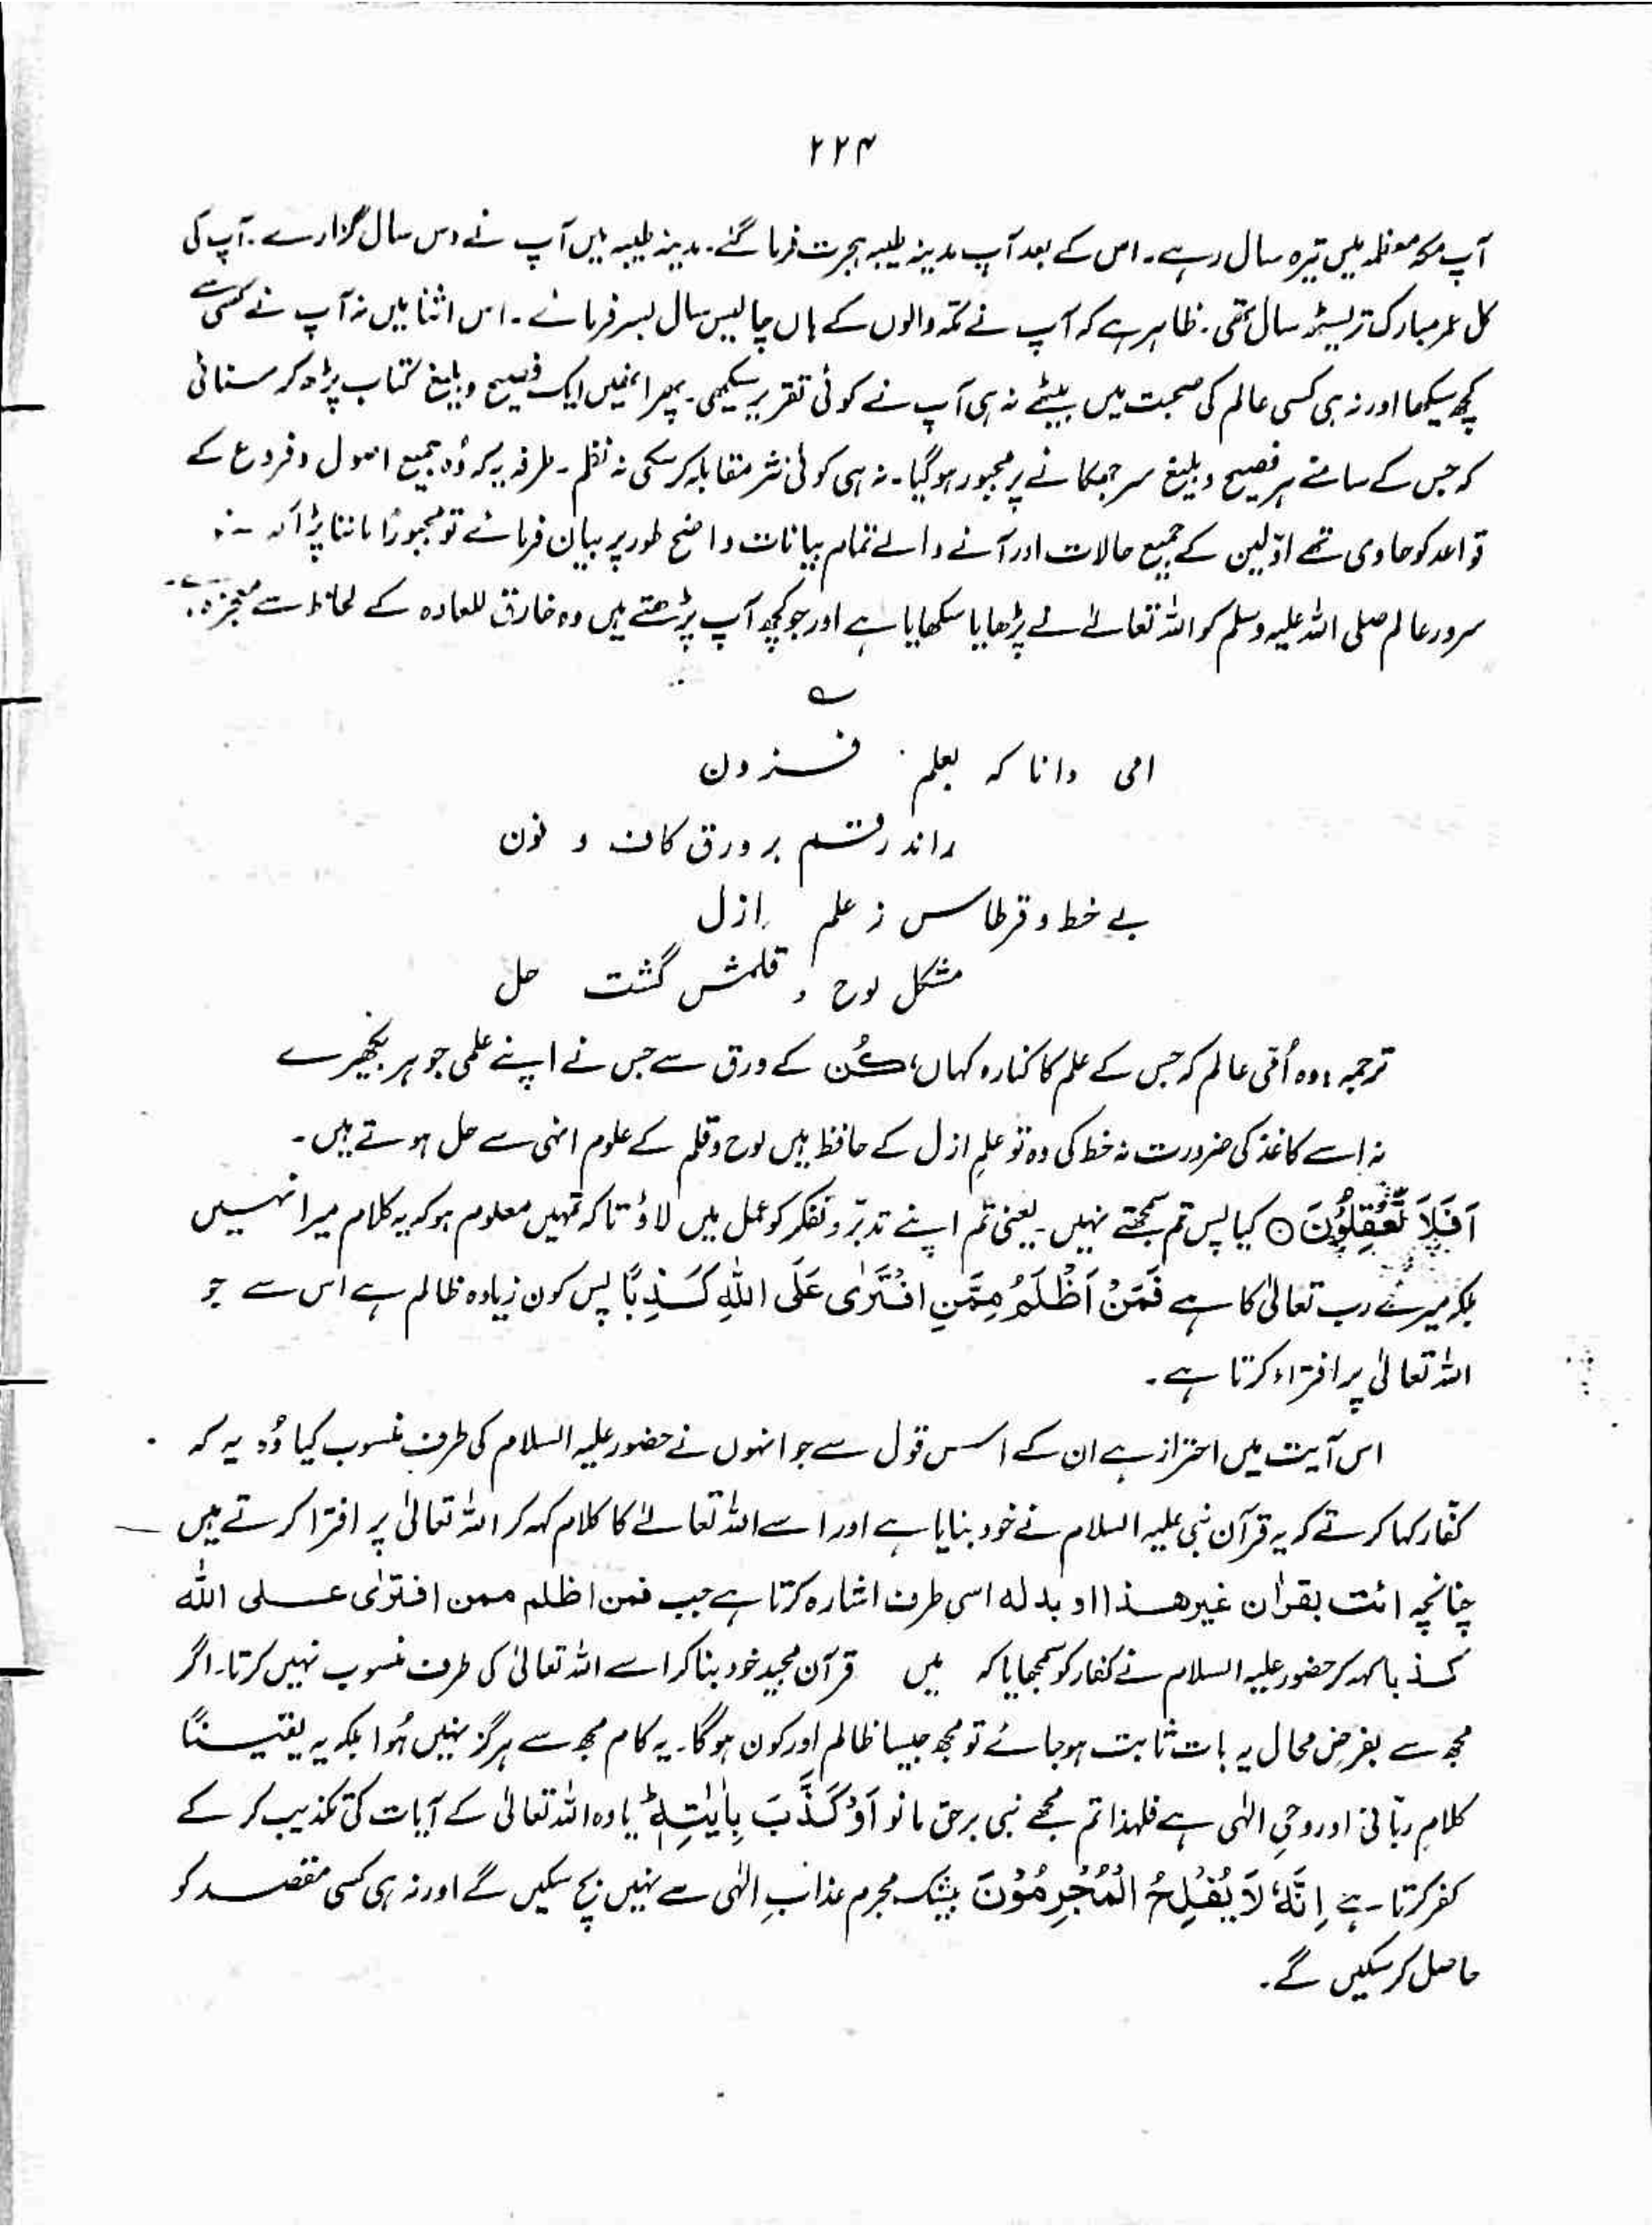 ۲۲۴
آپ مکہ معظمہ میں تیرہ سال رہے۔ اس کے بعد آپ مدینہ طیبہ ہجرت فرما گئے۔ مدینہ طیبہ میں آپ نے دس سال گزارے۔ آپ کی
کل عمر مبارک تریسٹھ سال تھی۔ ظاہر ہے کہ آپ نے مکہ والوں کے ہاں چالیس سال بسر فرمائے۔ اس اثنا میں نہ آپ نے کسی سے
کچھ سیکھا اور نہ ہی کسی عالم کی صحبت میں بیٹھے نہ ہی آپ نے کوئی تقریر سیکھی۔ پھر انھیں ایک فصیح و بلیغ کتاب پڑھ کر سنائی
کہ جس کے سامنے ہر فصیح و بلیغ سر جھکانے پر مجبور ہو گیا۔ نہ ہی کوئی نثر مقابلہ کر سکی نہ نظم۔ طرفہ یہ کہ وُہ جمیع اصول و فروع کے
قواعد کو حاوی تھے اوّلین کے جمیع حالات اور آنے والے تمام بیانات واضح طور پر بیان فرمائے تو مجبوراً ماننا پڑا کہ
سرور عالم صلی اللہ علیہ وسلم کو اللہ تعالےٰ نے پڑھایا سکھایا ہے اور جو کچھ آپ پڑھتے ہیں وہ خارق للعادہ کے لحاظ سے معجزہ ہے۔
؎
امی دانا کہ بعلم فزون
راند رقم بر ورق کاف و نون
بے خط و قرطاس ز علم ازل
مشکل لوح و قلمش گشت حل
ترجمہ: وہ اُمّی عالم کہ جس کے علم کا کنارہ کہاں، کُن کے ورق سے جس نے اپنے علمی جوہر بکھیرے
نہ اسے کاغذ کی ضرورت نہ خط کی وہ تو علمِ ازل کے حافظ ہیں لوح و قلم کے علوم انہی سے حل ہوتے ہیں۔
اَفَلَا تَعْقِلُوْنَ ○ کیا پس تم سمجھتے نہیں۔ یعنی تم اپنے تدبّر و تفکر کو عمل میں لاؤ تاکہ تمہیں معلوم ہو کہ یہ کلام میرا نہیں
بلکہ میرے رب تعالیٰ کا ہے فَمَنْ اَظْلَمُ مِمَّنِ افْتَرٰى عَلَى اللّٰهِ كَذِبًا پس کون زیادہ ظالم ہے اُس سے جو
اللہ تعالیٰ پر افتراء کرتا ہے۔
اس آیت میں احتراز ہے ان کے اس قول سے جو انہوں نے حضور علیہ السلام کی طرف منسوب کیا وُہ یہ کہ
کفّار کہا کرتے کہ یہ قرآن نبی علیہ السلام نے خود بنایا ہے اور اسے اللہ تعالےٰ کا کلام کہہ کر اللہ تعالیٰ پر افترا کرتے ہیں
چنانچہ ائت بقرٰان غیر ھذا او بدلہ اسی طرف اشارہ کرتا ہے جب فمن اظلم ممن افترٰی علی اللہ
کذبا کہہ کر حضور علیہ السلام نے کفار کو سمجھایا کہ میں قرآن مجید خود بنا کر اسے اللہ تعالیٰ کی طرف منسوب نہیں کرتا۔ اگر
مجھ سے بفرضِ محال یہ بات ثابت ہو جائے تو مجھ جیسا ظالم اور کون ہوگا۔ یہ کام مجھ سے ہرگز نہیں ہُوا بلکہ یہ یقیناً
کلامِ ربّانی اور وحیِ الٰہی ہے فلہٰذا تم مجھے نبی برحق مانو اَوْ كَذَّبَ بِاٰيٰتِهٖ ؕ یا وہ اللہ تعالیٰ کے آیات کی تکذیب کر کے
کفر کرتا ہے اِنَّهٗ لَا يُفْلِحُ الْمُجْرِمُوْنَ بیشک مجرم عذابِ الٰہی سے نہیں بچ سکیں گے اور نہ ہی کسی مقصد کو
حاصل کر سکیں گے۔